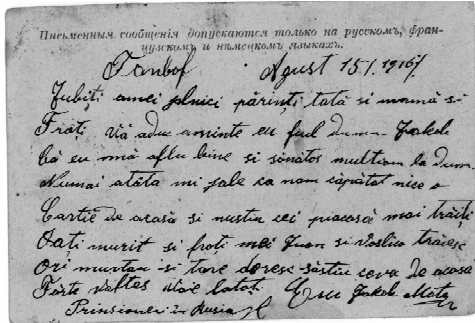 Письменныя сообщенія допускаются только на русскомъ, фран-
цузскомъ и нѣмецкомъ языкахъ.
Tanbof Agust 15/ 1916
Iubiți amei părinți tată si mamă si
Frați Vă aduc aminte eu fiul dum Iakob
că eu mă aflu bine si sănătos multiam la dum
Numai atâta mi jale ca nam căpătat nice o
Cartie de acasă si nustiu cei pacasă mai trăiți
Oați murit si frați mei Juon si Vasilica trăiesc
Ori murtau si tare doresc sästiu ceva de acasă
Eu Iakob
Prinsioner in Rusia